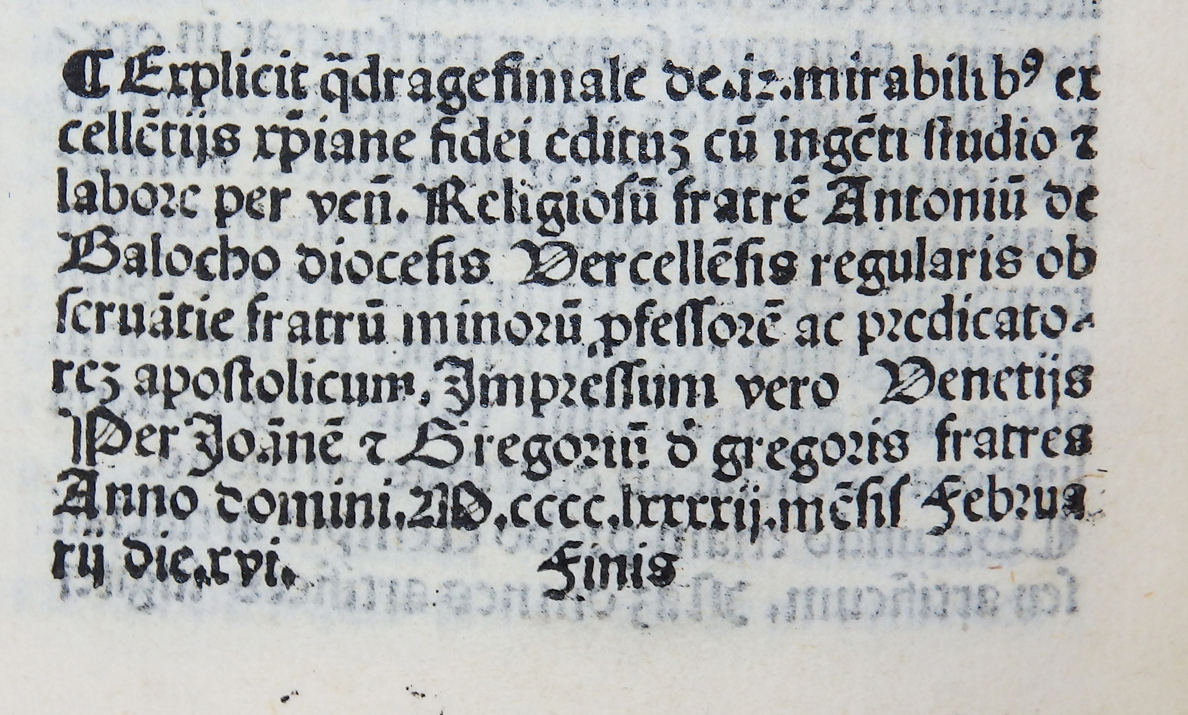 ¶ Explicit q̄dragesimale de.12.mirabilibꝰ ex
cellētijs xp̄iane fidei edituꝫ cū ingēti studio ⁊
labore per ven̄. Religiosū fratrē Antoniū de
Balocho diocesis Vercellēsis regularis ob
seruātie fratrū minorū ꝓfessorē ac predicato-
reꝫ apostolicum. Impressum vero Venetijs
Per Joānē ⁊ Gregoriū d̄ gregoris fratres
Anno domini.M.cccc.lxxxxij.mēsis Februa
rij die.xvi. Finis